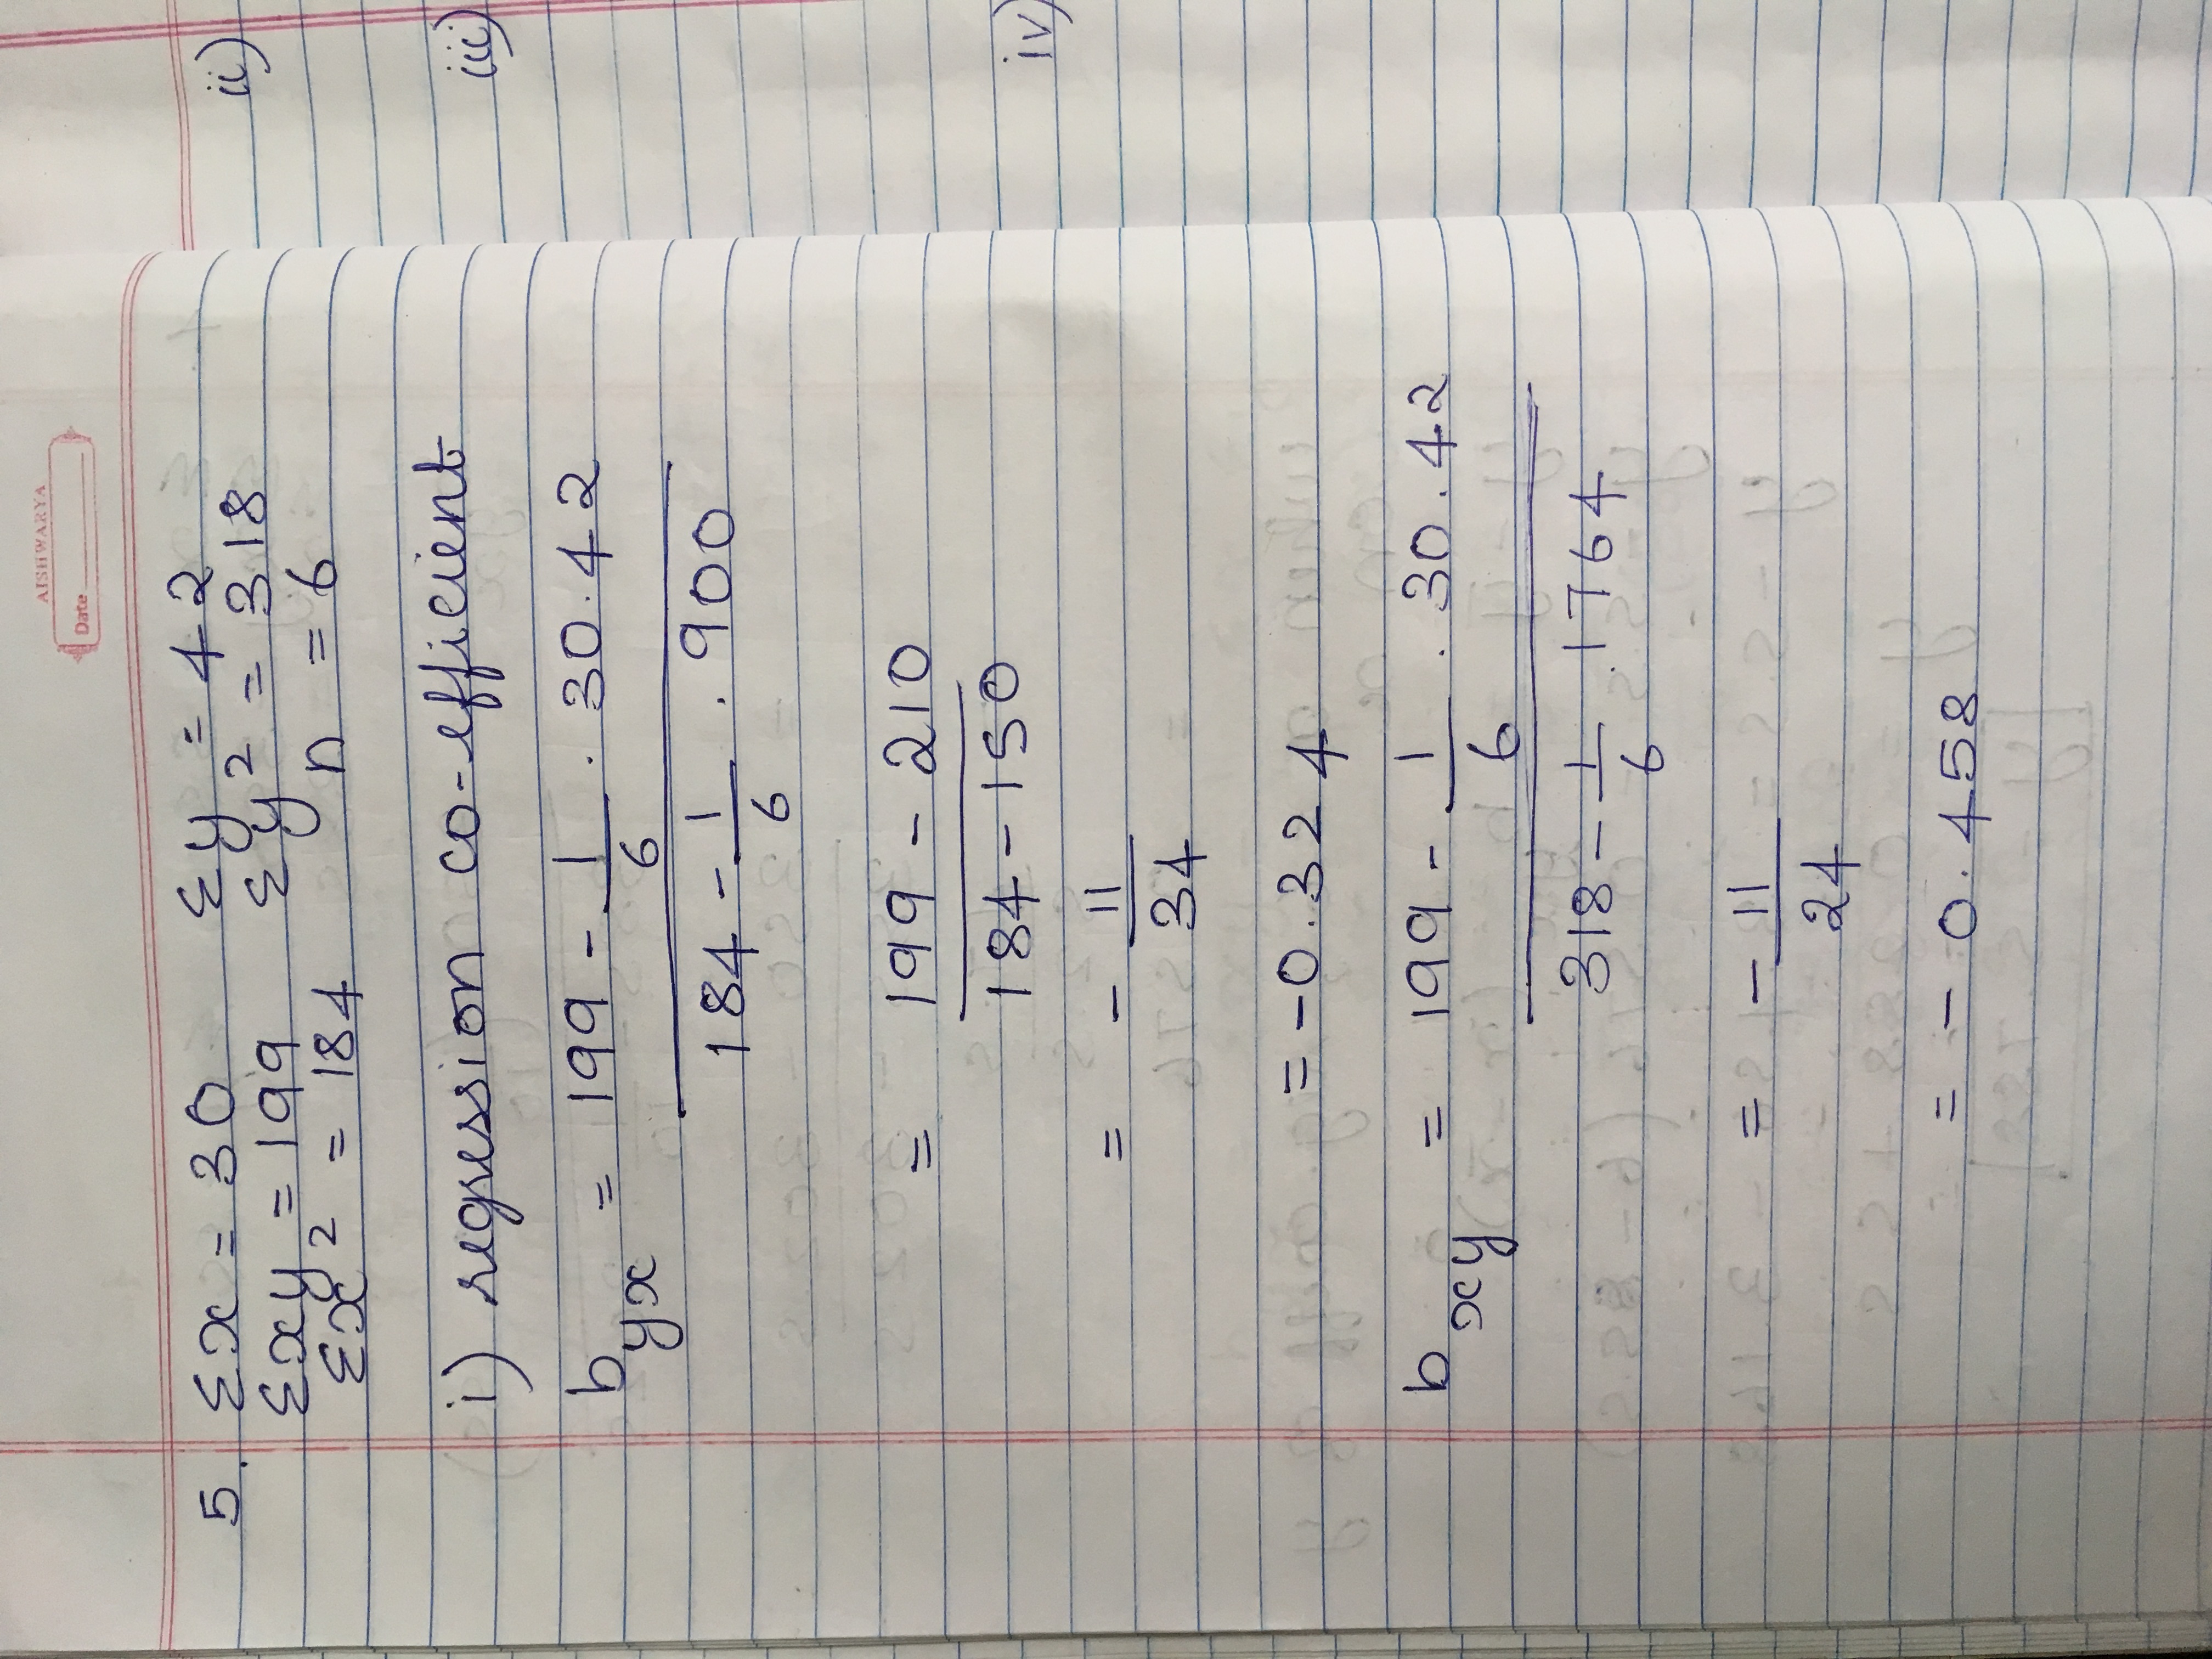 AISHWARYA
Date
5. Σx = 30 Σy = 42
Σxy = 199 Σy² = 318
Σx² = 184 n = 6
i) regression co-efficient
b_yx = 199 - 1/6 . 30.42
184 - 1/6 . 900
= 199 - 210
184 - 150
= - 11/34
= -0.324
b_xy = 199 - 1/6 . 30.42
318 - 1/6 . 1764
= - 11/24
= - 0.458
ii)
iii)
iv)